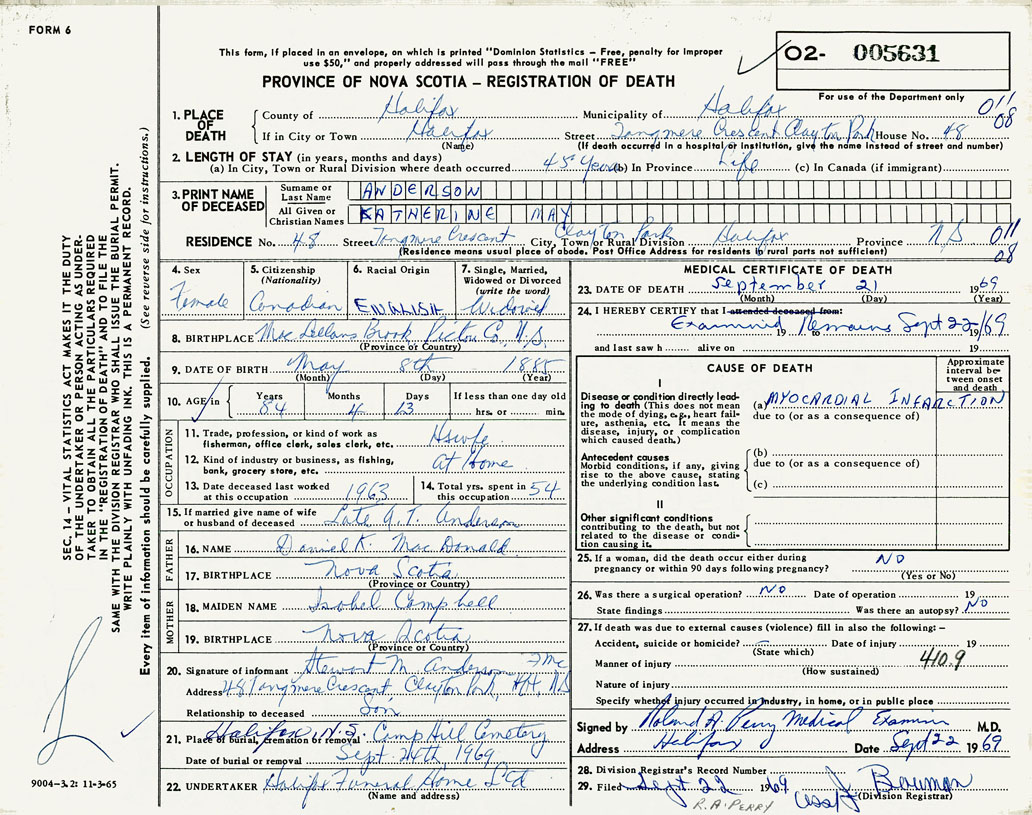 FORM 6
This form, if placed in an envelope, on which is printed "Dominion Statistics – Free, penalty for improper
use $50," and properly addressed will pass through the mail "FREE"
O2- 005631
PROVINCE OF NOVA SCOTIA – REGISTRATION OF DEATH
For use of the Department only
011
08
1. PLACE OF DEATH
County of Halifax Municipality of Halifax
If in City or Town Halifax Street Tangmere Crescent Clayton Park House No. 48
(Name) (If death occurred in a hospital or institution, give the name instead of street and number)
2. LENGTH OF STAY (in years, months and days)
(a) In City, Town or Rural Division where death occurred 45 Years (b) In Province Life (c) In Canada (if immigrant)
3. PRINT NAME OF DECEASED
Surname or Last Name ANDERSON
All Given or Christian Names KATHERINE MAY
RESIDENCE No. 48 Street Tangmere Crescent City, Town or Rural Division Clayton Park Halifax Province N.S
011
08
(Residence means usual place of abode. Post Office Address for residents in rural parts not sufficient)
4. Sex Female
5. Citizenship (Nationality) Canadian
6. Racial Origin ENGLISH
7. Single, Married, Widowed or Divorced (write the word) Widowed
8. BIRTHPLACE MacLellans Brook Pictou Co., N.S.
(Province or Country)
9. DATE OF BIRTH May 8th 1885
(Month) (Day) (Year)
10. AGE in Years 84 Months 4 Days 13 If less than one day old hrs. or min.
OCCUPATION
11. Trade, profession, or kind of work as fisherman, office clerk, sales clerk, etc. Hswfe
12. Kind of industry or business, as fishing, bank, grocery store, etc. At Home
13. Date deceased last worked at this occupation 1963
14. Total yrs. spent in this occupation 54
15. If married give name of wife or husband of deceased Late A.T. Anderson
FATHER
16. NAME Daniel K. MacDonald
17. BIRTHPLACE Nova Scotia
(Province or Country)
MOTHER
18. MAIDEN NAME Isobel Campbell
19. BIRTHPLACE Nova Scotia
(Province or Country)
20. Signature of informant Stewart M. Anderson
Address 48 Tangmere Crescent, Clayton Park, N.S
Relationship to deceased Son
21. Place of burial, cremation or removal Halifax N.S. Camp Hill Cemetery
Date of burial or removal Sept. 24th, 1969
22. UNDERTAKER Halifax Funeral Home Ltd
(Name and address)
MEDICAL CERTIFICATE OF DEATH
23. DATE OF DEATH September 21 1969
(Month) (Day) (Year)
24. I HEREBY CERTIFY that I attended deceased from:
Examined 19 to Remains Sept 22 19/69
and last saw h alive on 19
CAUSE OF DEATH
Approximate interval between onset and death
I
Disease or condition directly leading to death (This does not mean the mode of dying, e.g., heart failure, asthenia, etc. It means the disease, injury, or complication which caused death.)
(a) MYOCARDIAL INFARCTION
due to (or as a consequence of)
Antecedent causes
Morbid conditions, if any, giving rise to the above cause, stating the underlying condition last.
(b)
due to (or as a consequence of)
(c)
II
Other significant conditions
contributing to the death, but not related to the disease or condition causing it.
25. If a woman, did the death occur either during pregnancy or within 90 days following pregnancy? NO
(Yes or No)
26. Was there a surgical operation? NO Date of operation 19
State findings Was there an autopsy? NO
27. If death was due to external causes (violence) fill in also the following:–
Accident, suicide or homicide? Date of injury 19
(State which)
Manner of injury 410.9
(How sustained)
Nature of injury
Specify whether injury occurred in industry, in home, or in public place
Signed by Roland A. Perry Medical Examiner M.D.
Address Halifax Date Sept 22 1969
28. Division Registrar's Record Number
29. Filed Sept 22 1969 J. Bowman
(Division Registrar)
R.A. PERRY
SEC. 14 – VITAL STATISTICS ACT MAKES IT THE DUTY
OF THE UNDERTAKER OR PERSON ACTING AS UNDER-
TAKER TO OBTAIN ALL THE PARTICULARS REQUIRED
IN THE "REGISTRATION OF DEATH" AND TO FILE THE
SAME WITH THE DIVISION REGISTRAR WHO SHALL ISSUE THE BURIAL PERMIT.
WRITE PLAINLY WITH UNFADING INK. THIS IS A PERMANENT RECORD.
Every item of information should be carefully supplied. (See reverse side for instructions.)
9004–3.2: 11-3-65